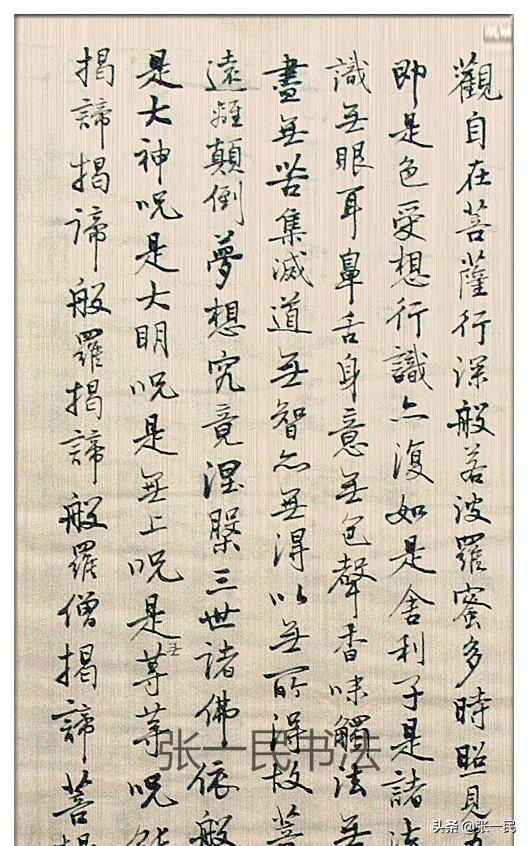 觀自在菩薩行深般若波羅蜜多時照見
即是色受想行識亦復如是舍利子是諸法
識無眼耳鼻舌身意無色聲香味觸法無
盡無苦集滅道無智亦無得以無所得故菩
遠離顛倒夢想究竟涅槃三世諸佛依般
是大神咒是大明咒是無上咒是无等等咒能
揭諦揭諦般羅揭諦般羅僧揭諦菩
张一民书法
头条 @张一民